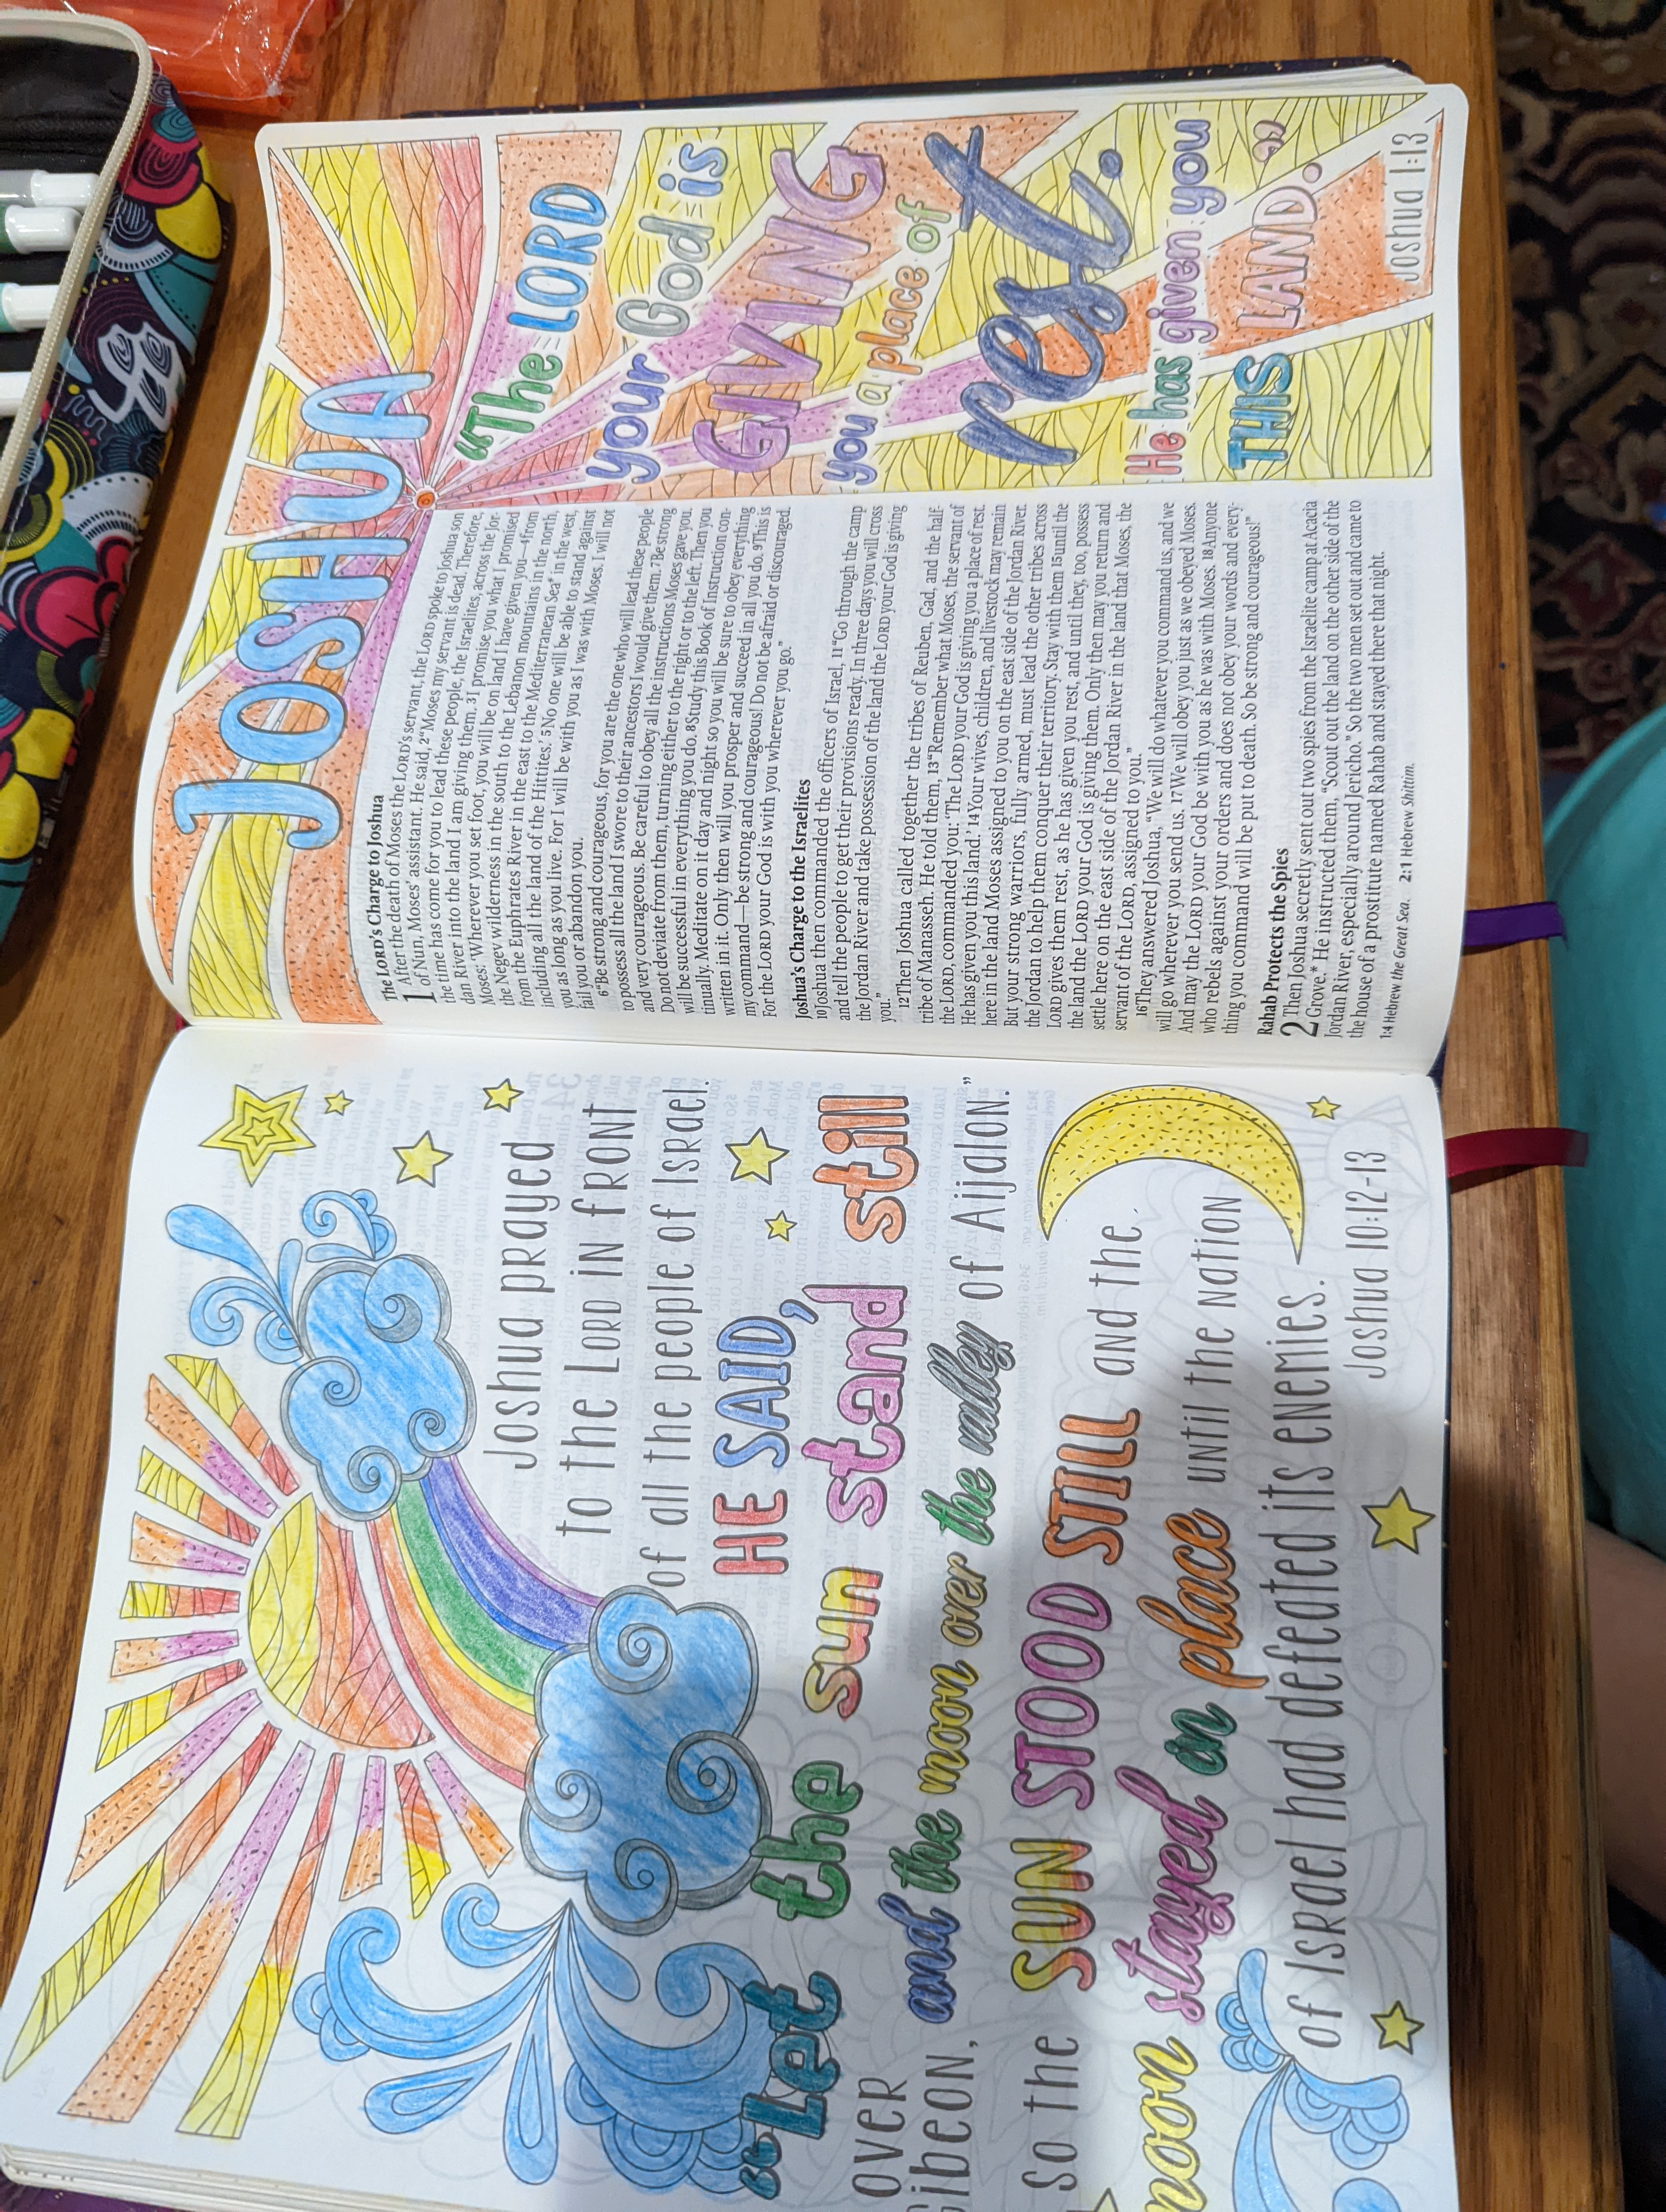 Joshua prayed
to the Lord in front
of all the people of Israel.
HE SAID,
“Let the sun stand still
over
Gibeon, and the moon over the valley of Aijalon.”
So the SUN STOOD STILL and the
moon stayed in place until the nation
of Israel had defeated its enemies.
Joshua 10:12-13
JOSHUA
The LORD’s Charge to Joshua
1 After the death of Moses the LORD’s servant, the LORD spoke to Joshua son
of Nun, Moses’ assistant. He said, 2“Moses my servant is dead. Therefore,
the time has come for you to lead these people, the Israelites, across the Jor-
dan River into the land I am giving them. 3I promise you what I promised
Moses: ‘Wherever you set foot, you will be on land I have given you—4from
the Negev wilderness in the south to the Lebanon mountains in the north,
from the Euphrates River in the east to the Mediterranean Sea* in the west,
including all the land of the Hittites.’ 5No one will be able to stand against
you as long as you live. For I will be with you as I was with Moses. I will not
fail you or abandon you.
6“Be strong and courageous, for you are the one who will lead these people
to possess all the land I swore to their ancestors I would give them. 7Be strong
and very courageous. Be careful to obey all the instructions Moses gave you.
Do not deviate from them, turning either to the right or to the left. Then you
will be successful in everything you do. 8Study this Book of Instruction con-
tinually. Meditate on it day and night so you will be sure to obey everything
written in it. Only then will you prosper and succeed in all you do. 9This is
my command—be strong and courageous! Do not be afraid or discouraged.
For the LORD your God is with you wherever you go.”
Joshua’s Charge to the Israelites
10Joshua then commanded the officers of Israel, 11“Go through the camp
and tell the people to get their provisions ready. In three days you will cross
the Jordan River and take possession of the land the LORD your God is giving
you.”
12Then Joshua called together the tribes of Reuben, Gad, and the half-
tribe of Manasseh. He told them, 13“Remember what Moses, the servant of
the LORD, commanded you: ‘The LORD your God is giving you a place of rest.
He has given you this land.’ 14Your wives, children, and livestock may remain
here in the land Moses assigned to you on the east side of the Jordan River.
But your strong warriors, fully armed, must lead the other tribes across
the Jordan to help them conquer their territory. Stay with them 15until the
LORD gives them rest, as he has given you rest, and until they, too, possess
the land the LORD your God is giving them. Only then may you return and
settle here on the east side of the Jordan River in the land that Moses, the
servant of the LORD, assigned to you.”
16They answered Joshua, “We will do whatever you command us, and we
will go wherever you send us. 17We will obey you just as we obeyed Moses.
And may the LORD your God be with you as he was with Moses. 18Anyone
who rebels against your orders and does not obey your words and every-
thing you command will be put to death. So be strong and courageous!”
Rahab Protects the Spies
2 Then Joshua secretly sent out two spies from the Israelite camp at Acacia
Grove.* He instructed them, “Scout out the land on the other side of the
Jordan River, especially around Jericho.” So the two men set out and came to
the house of a prostitute named Rahab and stayed there that night.
1:4 Hebrew the Great Sea. 2:1 Hebrew Shittim.
“The LORD
your God is
GIVING
you a place of
rest.
He has given you
THIS LAND.”
Joshua 1:13